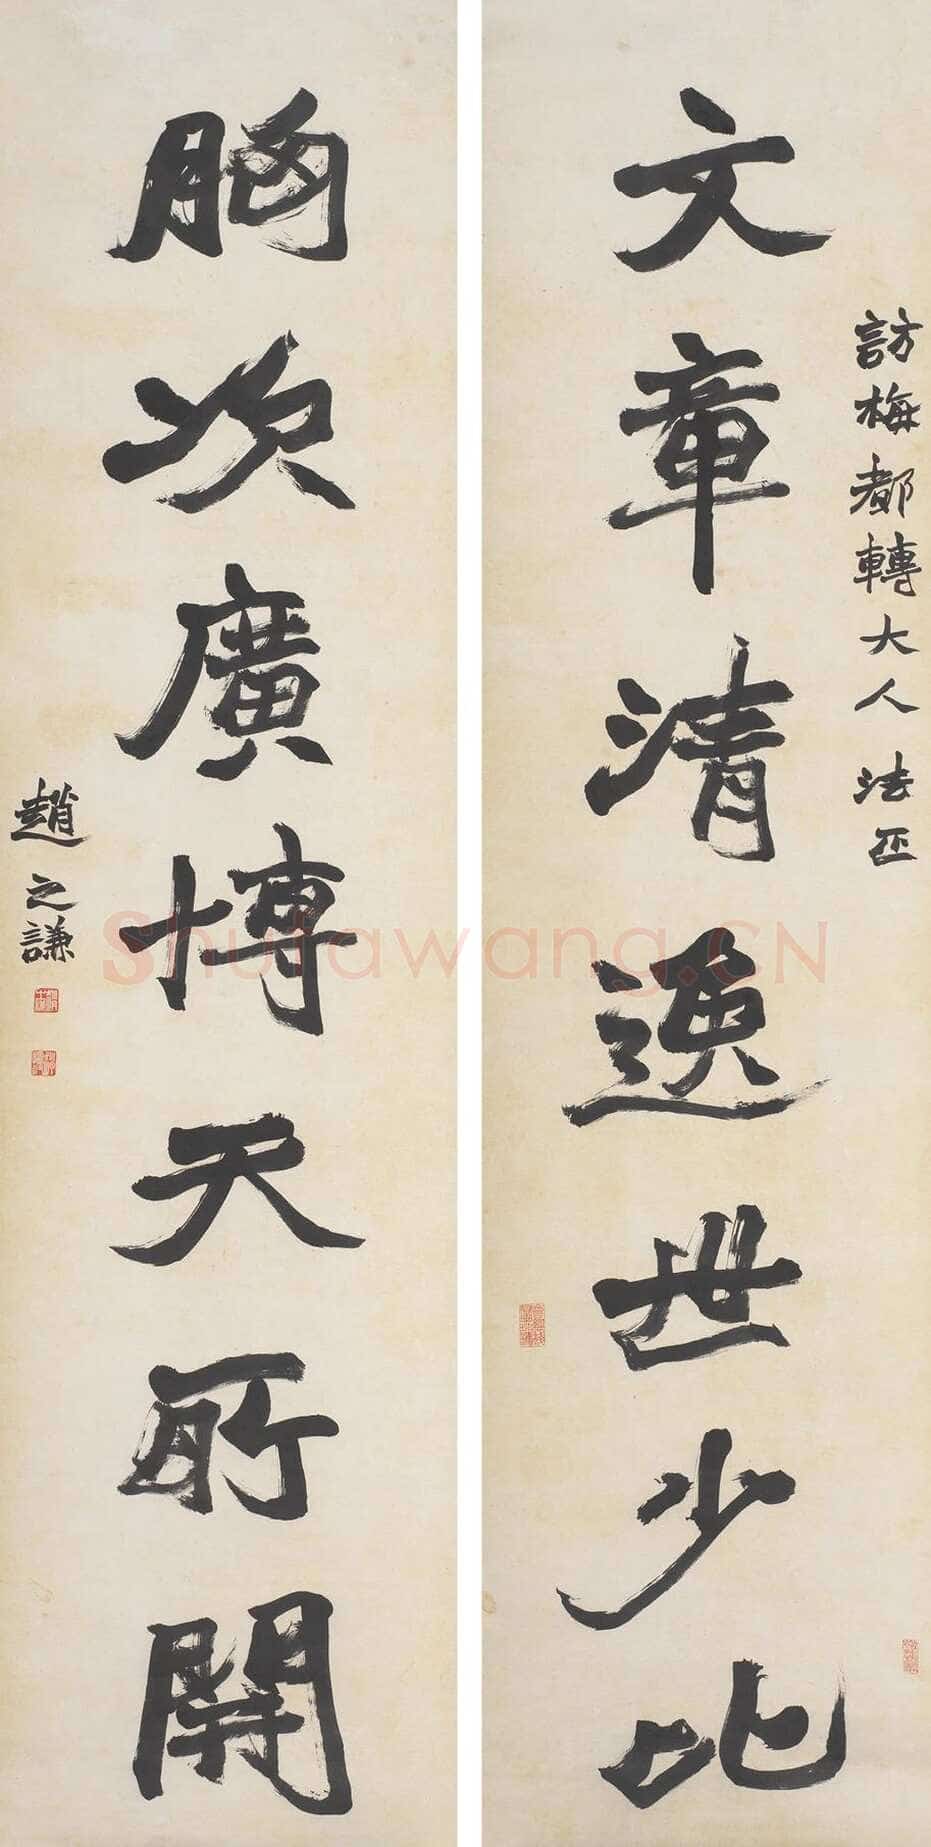 訪梅都轉大人法正
文章清逸世少比
胸次廣博天所開
趙之謙
Shufawang.CN